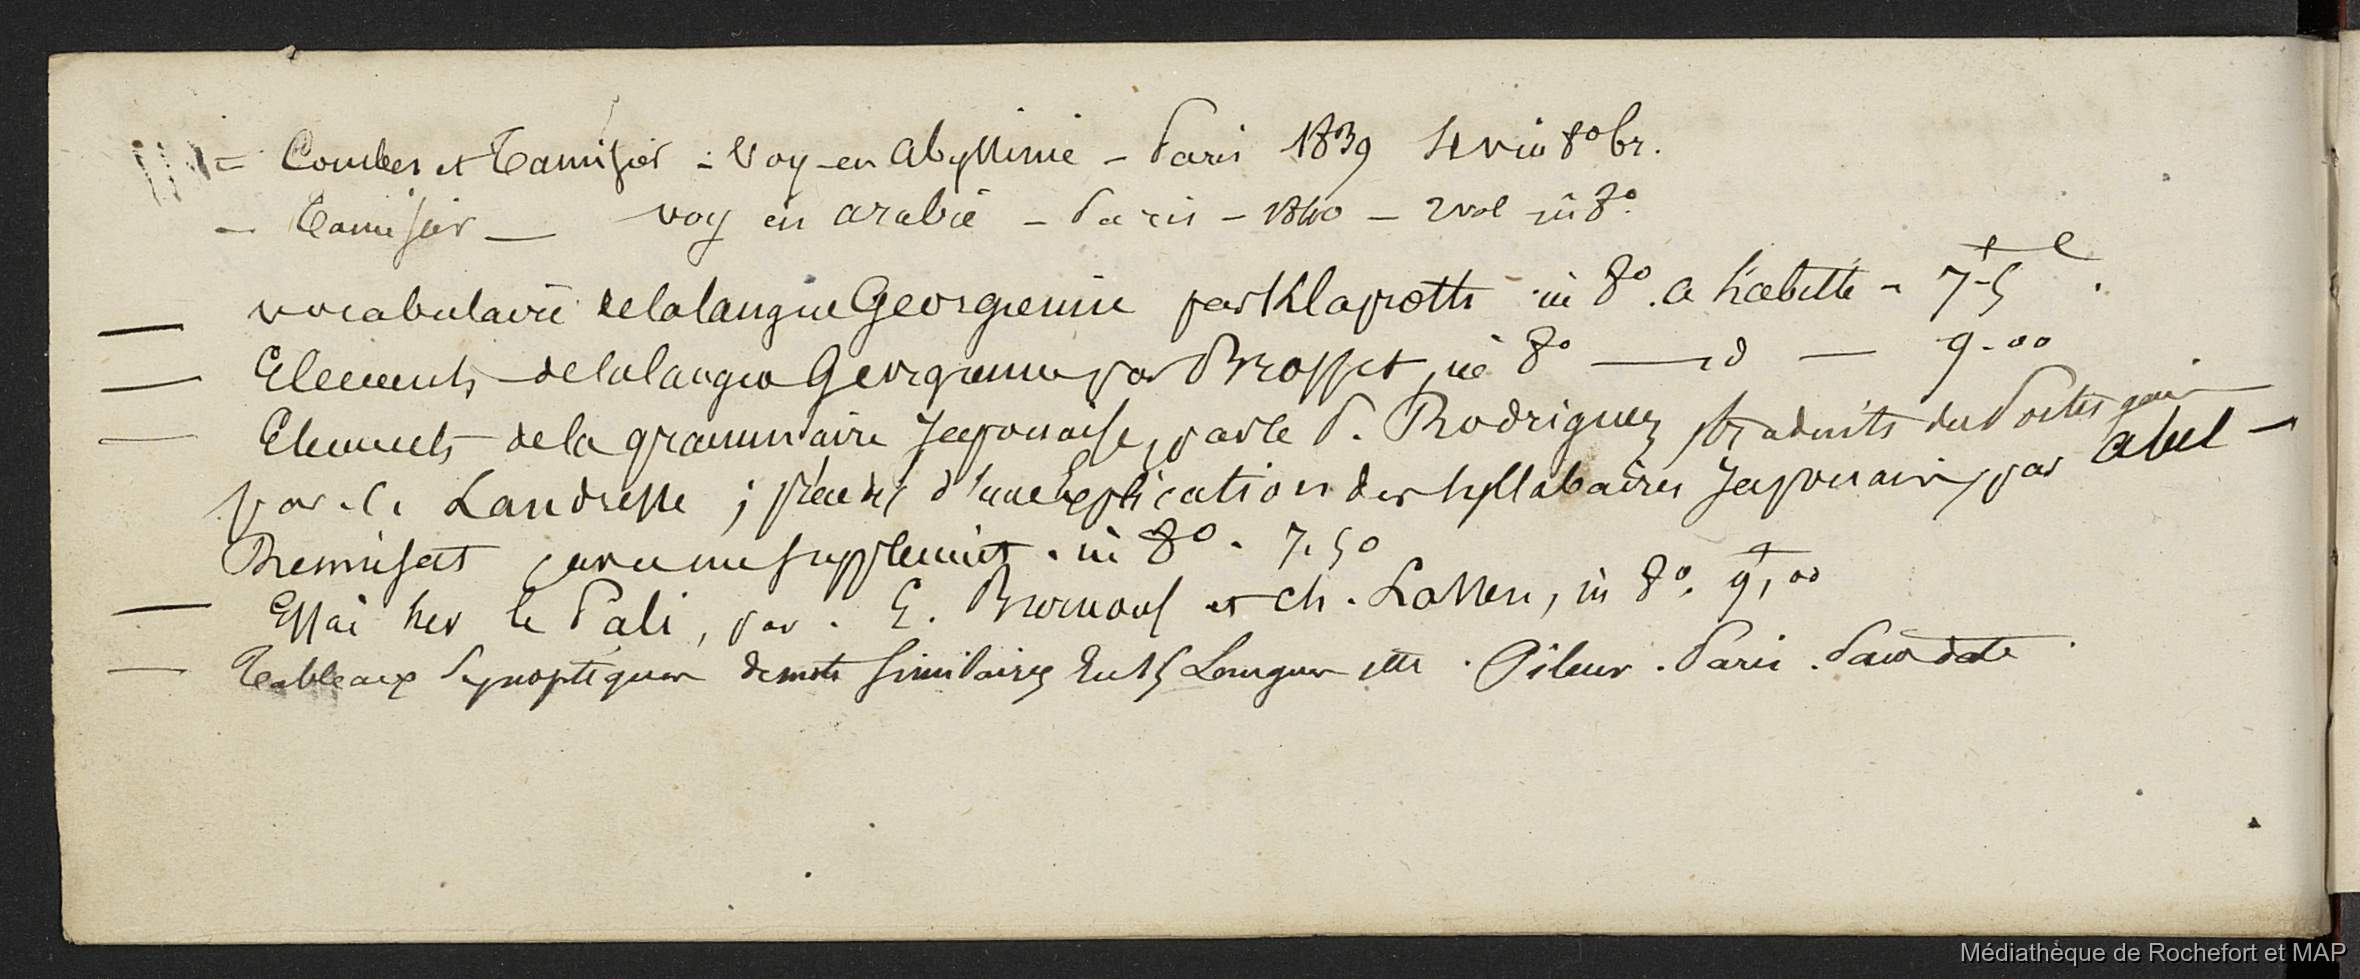 = Combes et Tamisier - Voy - en Abyssinie - Paris 1839 4 v in 8° br.
- Tamisier - voy en arabie - Paris - 1840 - 2 vol in 8°.
- vocabulaire de la langue Georgienne par Klaproth in 8°. - 7-5
- Elements de la langue Georgienne par Brosset, in 8° — d — 9-00
- Elements de la grammaire Japonaise, par le P. Rodriguez traduits du Portugais
par C. Landresse ; précédés d'une explication des syllabaires Japonais, par Abel -
Remusat, avec un supplement. in 8°. 7.50
- Essai sur le Pali, par. E. Burnouf et Ch. Lassen, in 8°. 9,00
- Tableaux Synoptiques de mots similaires Langues etc. Pileur. Paris. Sans date.
Médiathèque de Rochefort et MAP